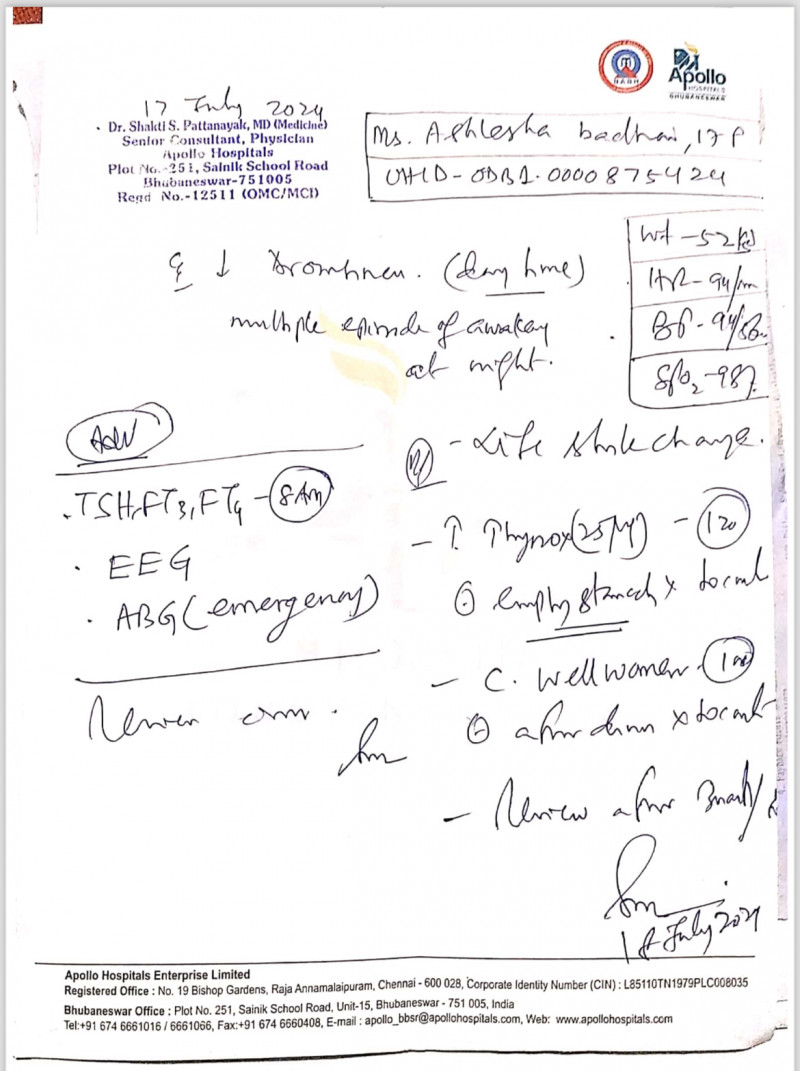 NABH
Apollo
HOSPITALS
BHUBANESWAR
17 July 2024
Dr. Shakti S. Pattanayak, MD (Medicine)
Senior Consultant, Physician
Apollo Hospitals
Plot No.-251, Sainik School Road
Bhubaneswar-751005
Regd No.-12511 (OMC/MCI)
Ms. Ashlesha badhai, 17 F
UHID-ODB1.0000875424
Wt - 52 kg
HR - 94/m
BP - 94/
SpO2 - 98%
↓ (day time)
multiple episode of
at night.
Adv
. TSH, FT3, FT4 - 8 Am
. EEG
. ABG (emergency)
Review
- Life style change.
- T. Thyrox (25 µg) - 120
empty stomach x
- C. Well women -
after x
- Review after
18 July 2024
Apollo Hospitals Enterprise Limited
Registered Office : No. 19 Bishop Gardens, Raja Annamalaipuram, Chennai - 600 028, Corporate Identity Number (CIN) : L85110TN1979PLC008035
Bhubaneswar Office : Plot No. 251, Sainik School Road, Unit-15, Bhubaneswar - 751 005, India
Tel:+91 674 6661016 / 6661066, Fax:+91 674 6660408, E-mail : apollo_bbsr@apollohospitals.com, Web: www.apollohospitals.com